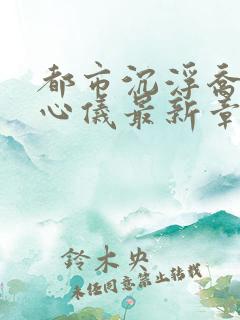 都市沉浮乔
心仪最新章
鈴木央
未经同意禁止转载